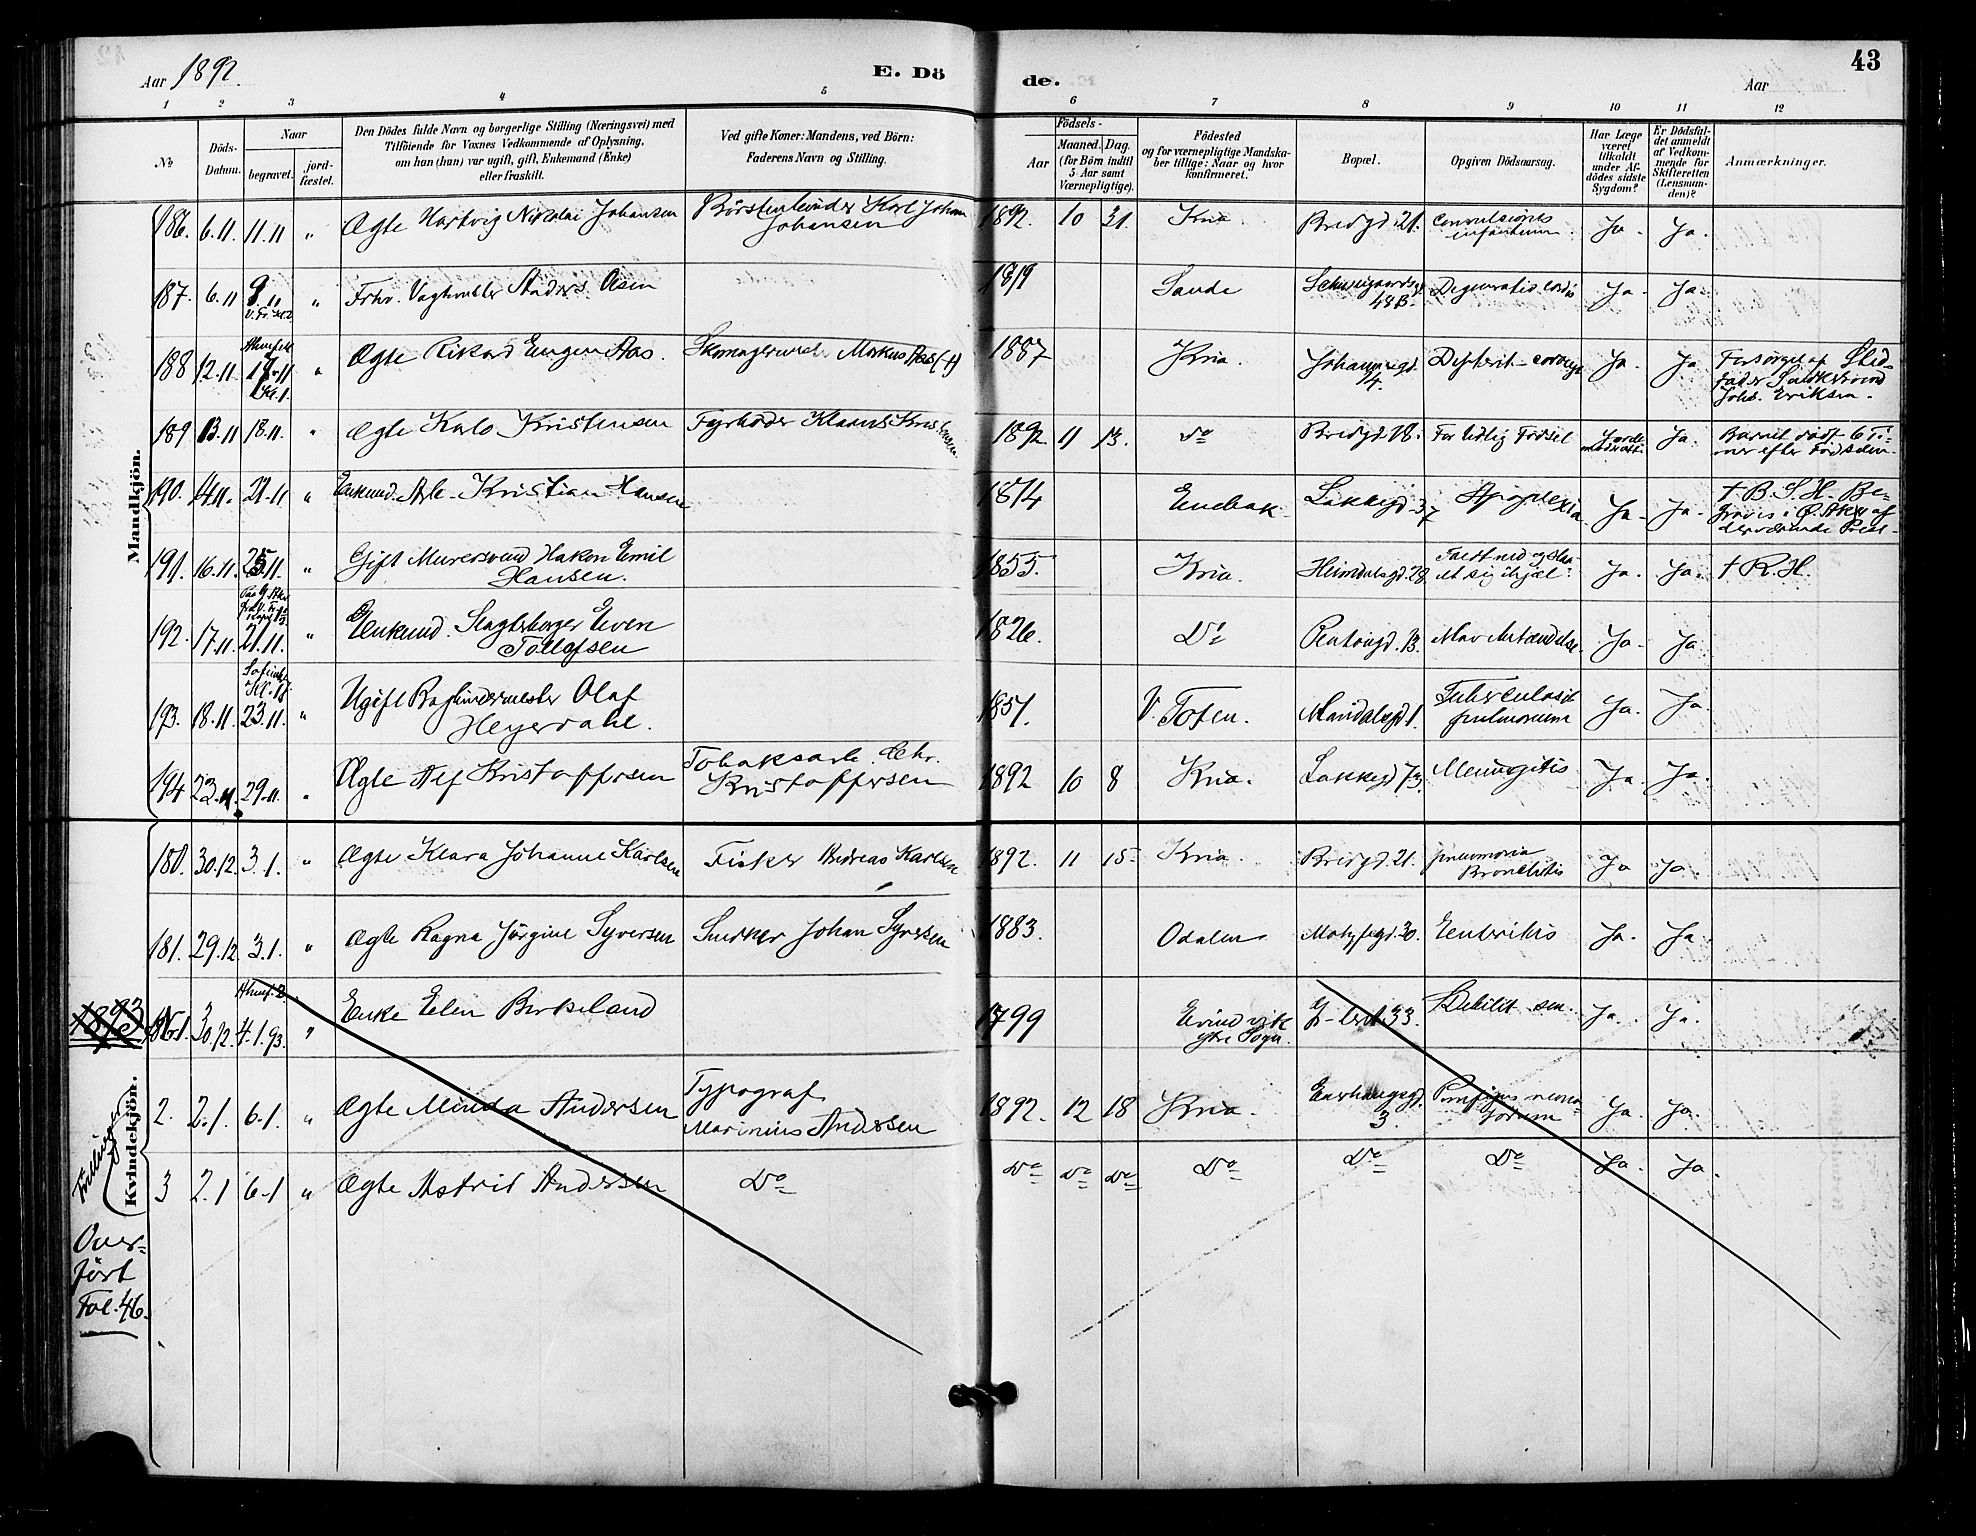 Aar 1892.
E. Dö
de.
Aar
43
1 2 3 4 5 6 7 8 9 10 11 12
No
Döds-
Datum.
Naar
begravet.
jord-
fæstet.
Den Dödes fulde Navn og borgerlige Stilling (Næringsvei) med
Tilföiende for Voxnes Vedkommende af Oplysning,
om han (hun) var ugift, gift, Enkemand (Enke)
eller fraskilt.
Ved gifte Koner: Mandens, ved Börn:
Faderens Navn og Stilling.
Födsels-
Aar
Maaned. Dag.
(for Börn indtil
5 Aar samt
Værnepligtige).
Födested
og for værnepligtige Mandska-
ber tillige: Naar og hvor
konfirmeret.
Bopæl.
Opgiven Dödsaarsag.
Har Læge
været
tilkaldt
under Af-
dödes sidste
Sygdom?
Er Dödsfal-
det anmeldt
af Vedkom-
mende for
Skifteretten
(Lensman-
den)?
Anmærkninger.
Mandkjön.
186. 6.11. 11.11 " Ægte Hartvig Nikolai Johansen Börstenbinder Karl Johan
Johansen 1892. 10 31. Kria. Bredgd. 21. Convulsiones
infantum. Ja. Ja.
187. 6.11 9.11 " Frhv. Vognmler Anders Olsen 1819 Sande Schweigaardsgd
48B. Degeneratio cordis Ja. Ja.
188 12.11 17.11 " Ægte Rikard Eugen Aas. Markus Aas (+) 1887 Kria. Johannesgd.
14. Ja. Ja. Forsörget af Sted-
fader
Johs. Eriksen.
189 13.11 18.11. " Ægte Karlo Kristensen Fyrböder Klaus Kristensen 1892. 11 13. Do Bredgd. 18. For tidlig Födsel Jorde-
moder att. Ja. Barnet död 6 Ti-
mer efter Födselen.
190. 14.11. 21.11 " Enkemd. Arb. Kristian Hansen 1814 Enebak Lakkegd. 37 Apoplexia Ja. Ja. † B. S. H. Be-
graves i Ö. Aker af
derværende Præst.
191. 16.11. 25.11. " Gift Murersvend Hakon Emil
Hansen. 1855. Kria. Heimdalsgd. 28 Faldt ned og slaa-
et sig ihjæl. Ja. Ja. † R. H.
192. 17.11. 21.11. " Enkemd. Slagterborger Even
Tollefsen 1826. Do Platougd. 13. Mavebetændelse Ja. Ja
193. 18.11. 23.11. " Ugift Bogbindermester Olaf
Heyerdahl. 1851. V. Toten. Mandalsgd. 1. Tuberculosis
pulmonum Ja. Ja.
194 23.11. 29.11. " Ægte Alf Kristoffersen Tobaksarb. Chr.
Kristoffersen 1892 10 8 Kria. Lakkegd 73. Meningitis Ja. Ja.
180. 30.12. 3.1. " Ægte Klara Johanne Karlsen Fisker Andreas Karlsen 1892. 11 15. Kria. Bredgd. 21. pneumonia
Bronchitis Ja Ja.
181. 29.12 3.1. " Ægte Ragna Jörgine Syversen Snedker Johan Syversen 1883. Odalen Motzfeldtgd. 20. Enteritis Ja. Ja.
1893
1. 30.12. 4.1.93. " Enke Elen Birkeland 1799 Eivindvik
ytre Sogn. Debilit. sen. Ja. Ja.
2. 2.1. 6.1. " Ægte Minda Andersen Typograf
Marinius Andersen 1892. 12 18 Kria. Enerhaugsgd.
3. Pemfigus neona-
torum Ja. Ja.
3 2.1 6.1 " Ægte Astrid Andersen Do Do Do Do Do Do Do Ja. Ja.
Tvillinger
Kvindekjön.
Over-
fört
Fol. 46.